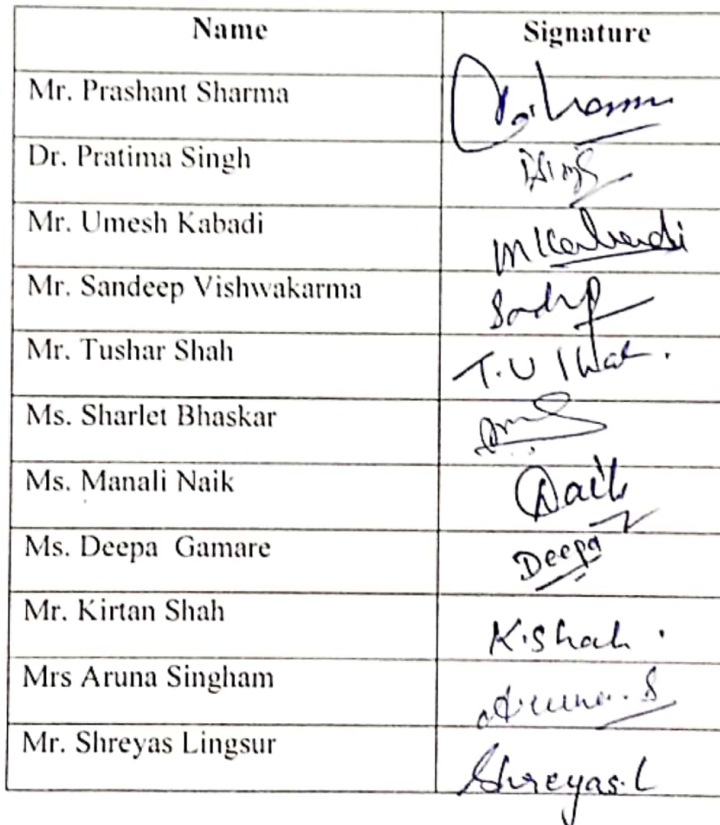 Name Signature
Mr. Prashant Sharma
Dr. Pratima Singh
Mr. Umesh Kabadi
Mr. Sandeep Vishwakarma
Mr. Tushar Shah T.U Shah.
Ms. Sharlet Bhaskar
Ms. Manali Naik Naik
Ms. Deepa Gamare Deepa
Mr. Kirtan Shah K.Shah.
Mrs Aruna Singham Aruna.S
Mr. Shreyas Lingsur Shreyas.L